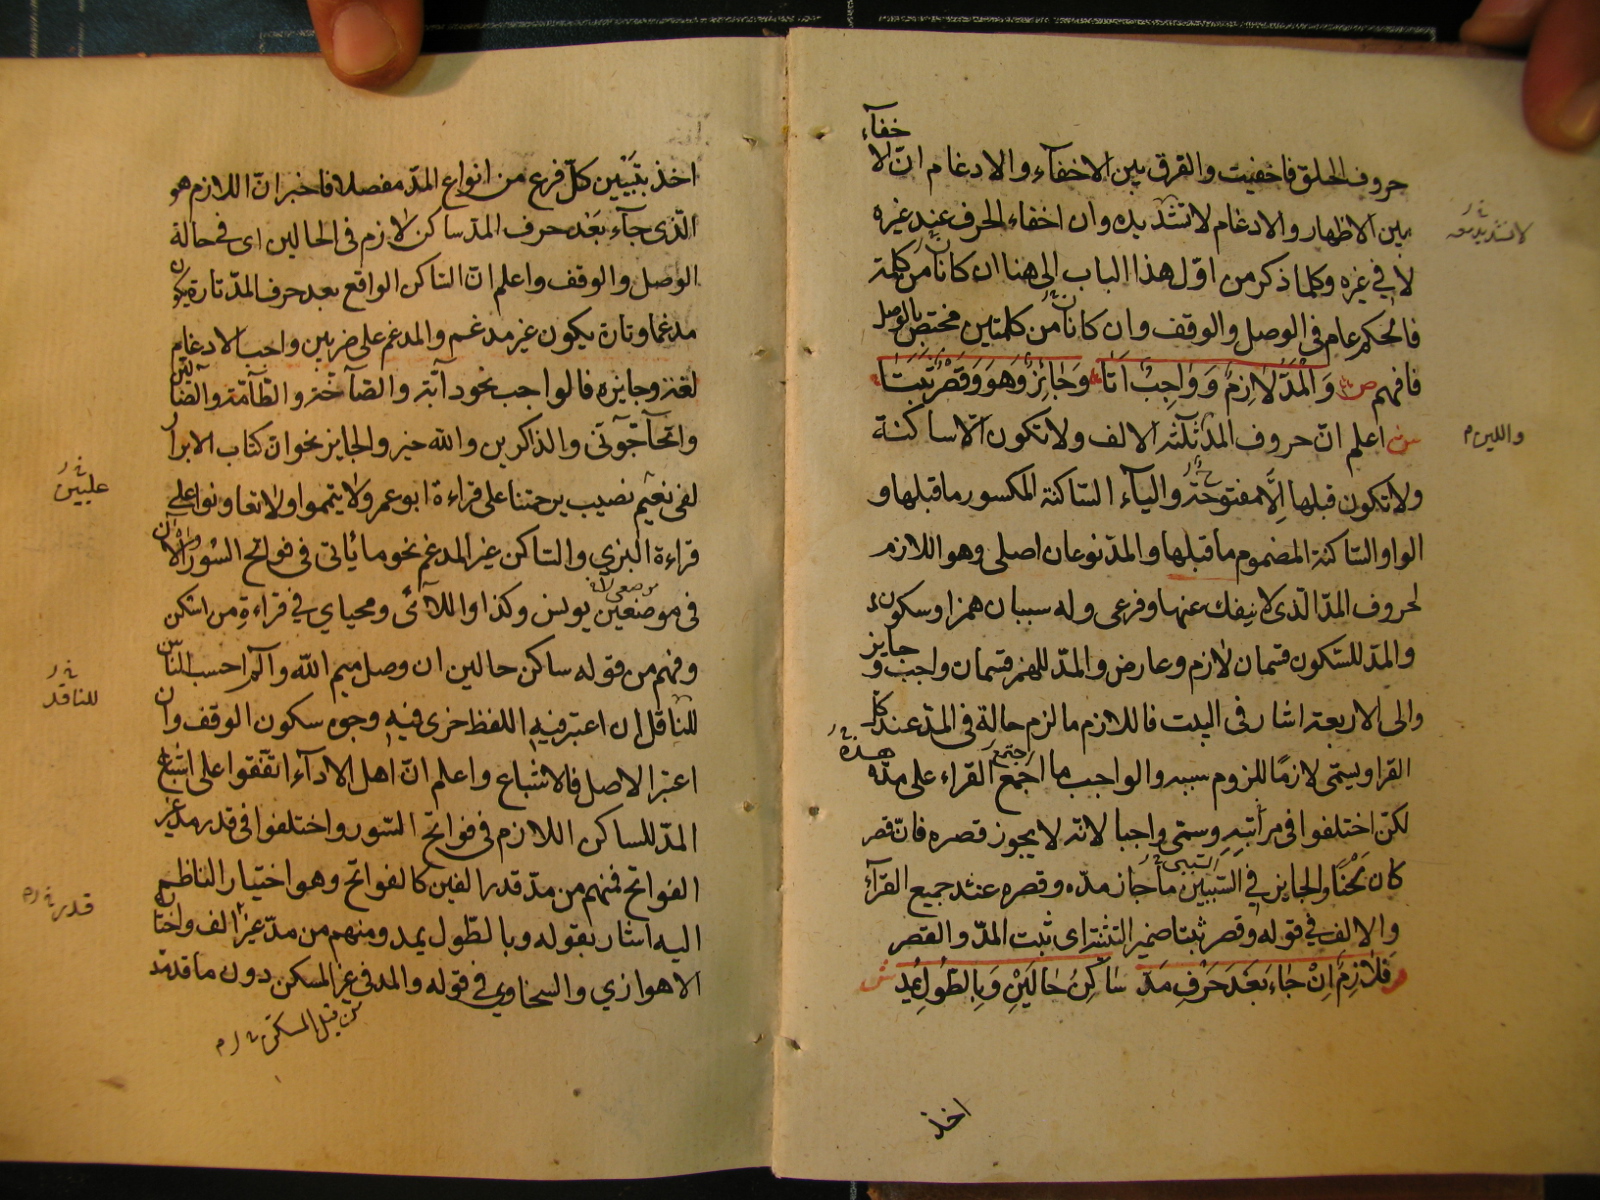 خفآء
حروف الحلق فاخفيت والفرق بين الاخفآء والادغام انّ الا
بين الاظهار والادغام لا تشديده وان اخفاء الحرف عند غيره
لا في غيره وكلما ذكر من اوّل هذا الباب الى هنا ان كانا من كلمة
فالحكم عام في الوصل والوقف وان كانا من كلمتين مختص بالوصل
فافهم ص وَالْمَدُّ لاَزِمٌ وَوَاجِبٌ اَتَا وَجَائِزٌ وَهوَ وَقَصْرٌ ثَبَتَا
اعلم انّ حروف المدّ ثلثة الالف ولا تكون الّا ساكنة
ولا تكون قبلها اِلَّا مفتوحة واليآء الساكنة المكسور ماقبلها و
الواو الساكنة المضموم ماقبلها والمدّ نوعان اصلى وهو اللازم
لحروف المدّ الّذى لا ينفك عنها وفرعى وله سببان همزا وسكون
والمدّ للسّكون قسمان لازم وعارض والمدّ للهمز قسمان واجب و جايز
والى الاربعة اشار فى البيت فاللازم ما لزم حالة فى المدّ عند كل
القرا ويسمّى لازمًا للزوم سببه والواجب ما اجمع القراء على مدّه
لكن اختلفوا فى مراتبه وسمّى واجبا لانّه لا يجوز قصره فانّ قصر
كان لَحْنًا والجايز في السّببين ما جاز مدّه وقصره عند جميع القرآء
والالف في قوله وقصر ثبتا ضمير التثنية اى ثبت المدّ والقصر
فَلاَزِمٌ اِنْ جَاءَ بَعْدَ حَرْفِ مَدّ سَاكِنُ حَالَيْنِ وَبِالطُّولِ يُمَد ش
لا تشديد معه
والليّن م
هذه
اجتمع
اخذ
اخذ بتَبْيين كلّ فرع من انواع المدّ مفصلا فاخبر انّ اللازم هو
الّذى جآء بَعْد حرف المدّ ساكن لازم فى الحالين اى فى حالة
الوصل والوقف واعلم انّ الساكن الواقع بعد حرف المدّ تارة يكون
مدغما وتارة يكون غير مدغم والمدغم على ضربين واجب الادغام
لغة وجايزه فالواجب نحو دآبّة والصّآخّة والطّآمّة والضّآلّين
واتحآجّوّنى والذاكرين وآلله خير والجايز نحو ان كتاب الابرار
لفى نعيم نصيب برحمتنا على قراءة ابو عمر ولا يتمموا ولا تعاونوا على
قراءة البزي والساكن غير المدغم نحو ما يأتى فى فواتح السّور والآن
فى موضعين يونس وكذا واللآئى ومحياي في قراءة من اسكن
وفهم من قوله ساكن حالين ان وصل ميم اللّه والٓمٓ احسب النّاس
للناقل ان اعتبر فيه اللفظ جرى فيه وجوه سكون الوقف وان
اعتبر الاصل فالاشباع واعلم انّ اهل الادآء اتّفقوا على اشباع
المدّ للساكن اللازم فى فواتح السّور واختلفوا فى قدر مدّ غير
الفواتح فمنهم من مدّ قدر الفين كالفواتح وهو اختيار الناظم
اليه اشار بقوله وبالطّول يمد ومنهم من مدّ غير الف واختاره
الاهوازي والسخاوي في قوله والمد فى غير المسكن دون ما قد مدّ
من قبل المسكن
للناقد
قدر